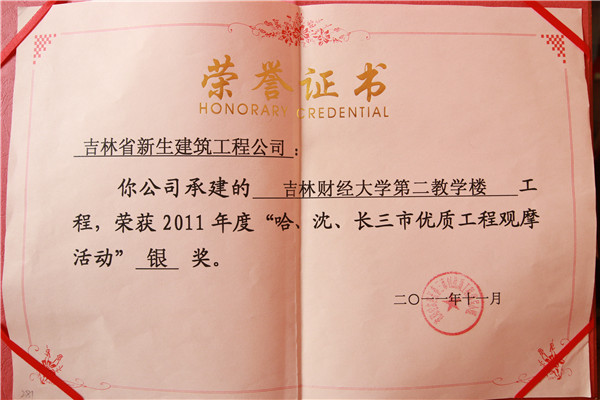 荣誉证书
HONORARY CREDENTIAL
吉林省新生建筑工程公司：
你公司承建的 吉林财经大学第二教学楼 工
程，荣获 2011 年度“哈、沈、长三市优质工程观摩
活动” 银 奖。
二〇一一年十一月
281